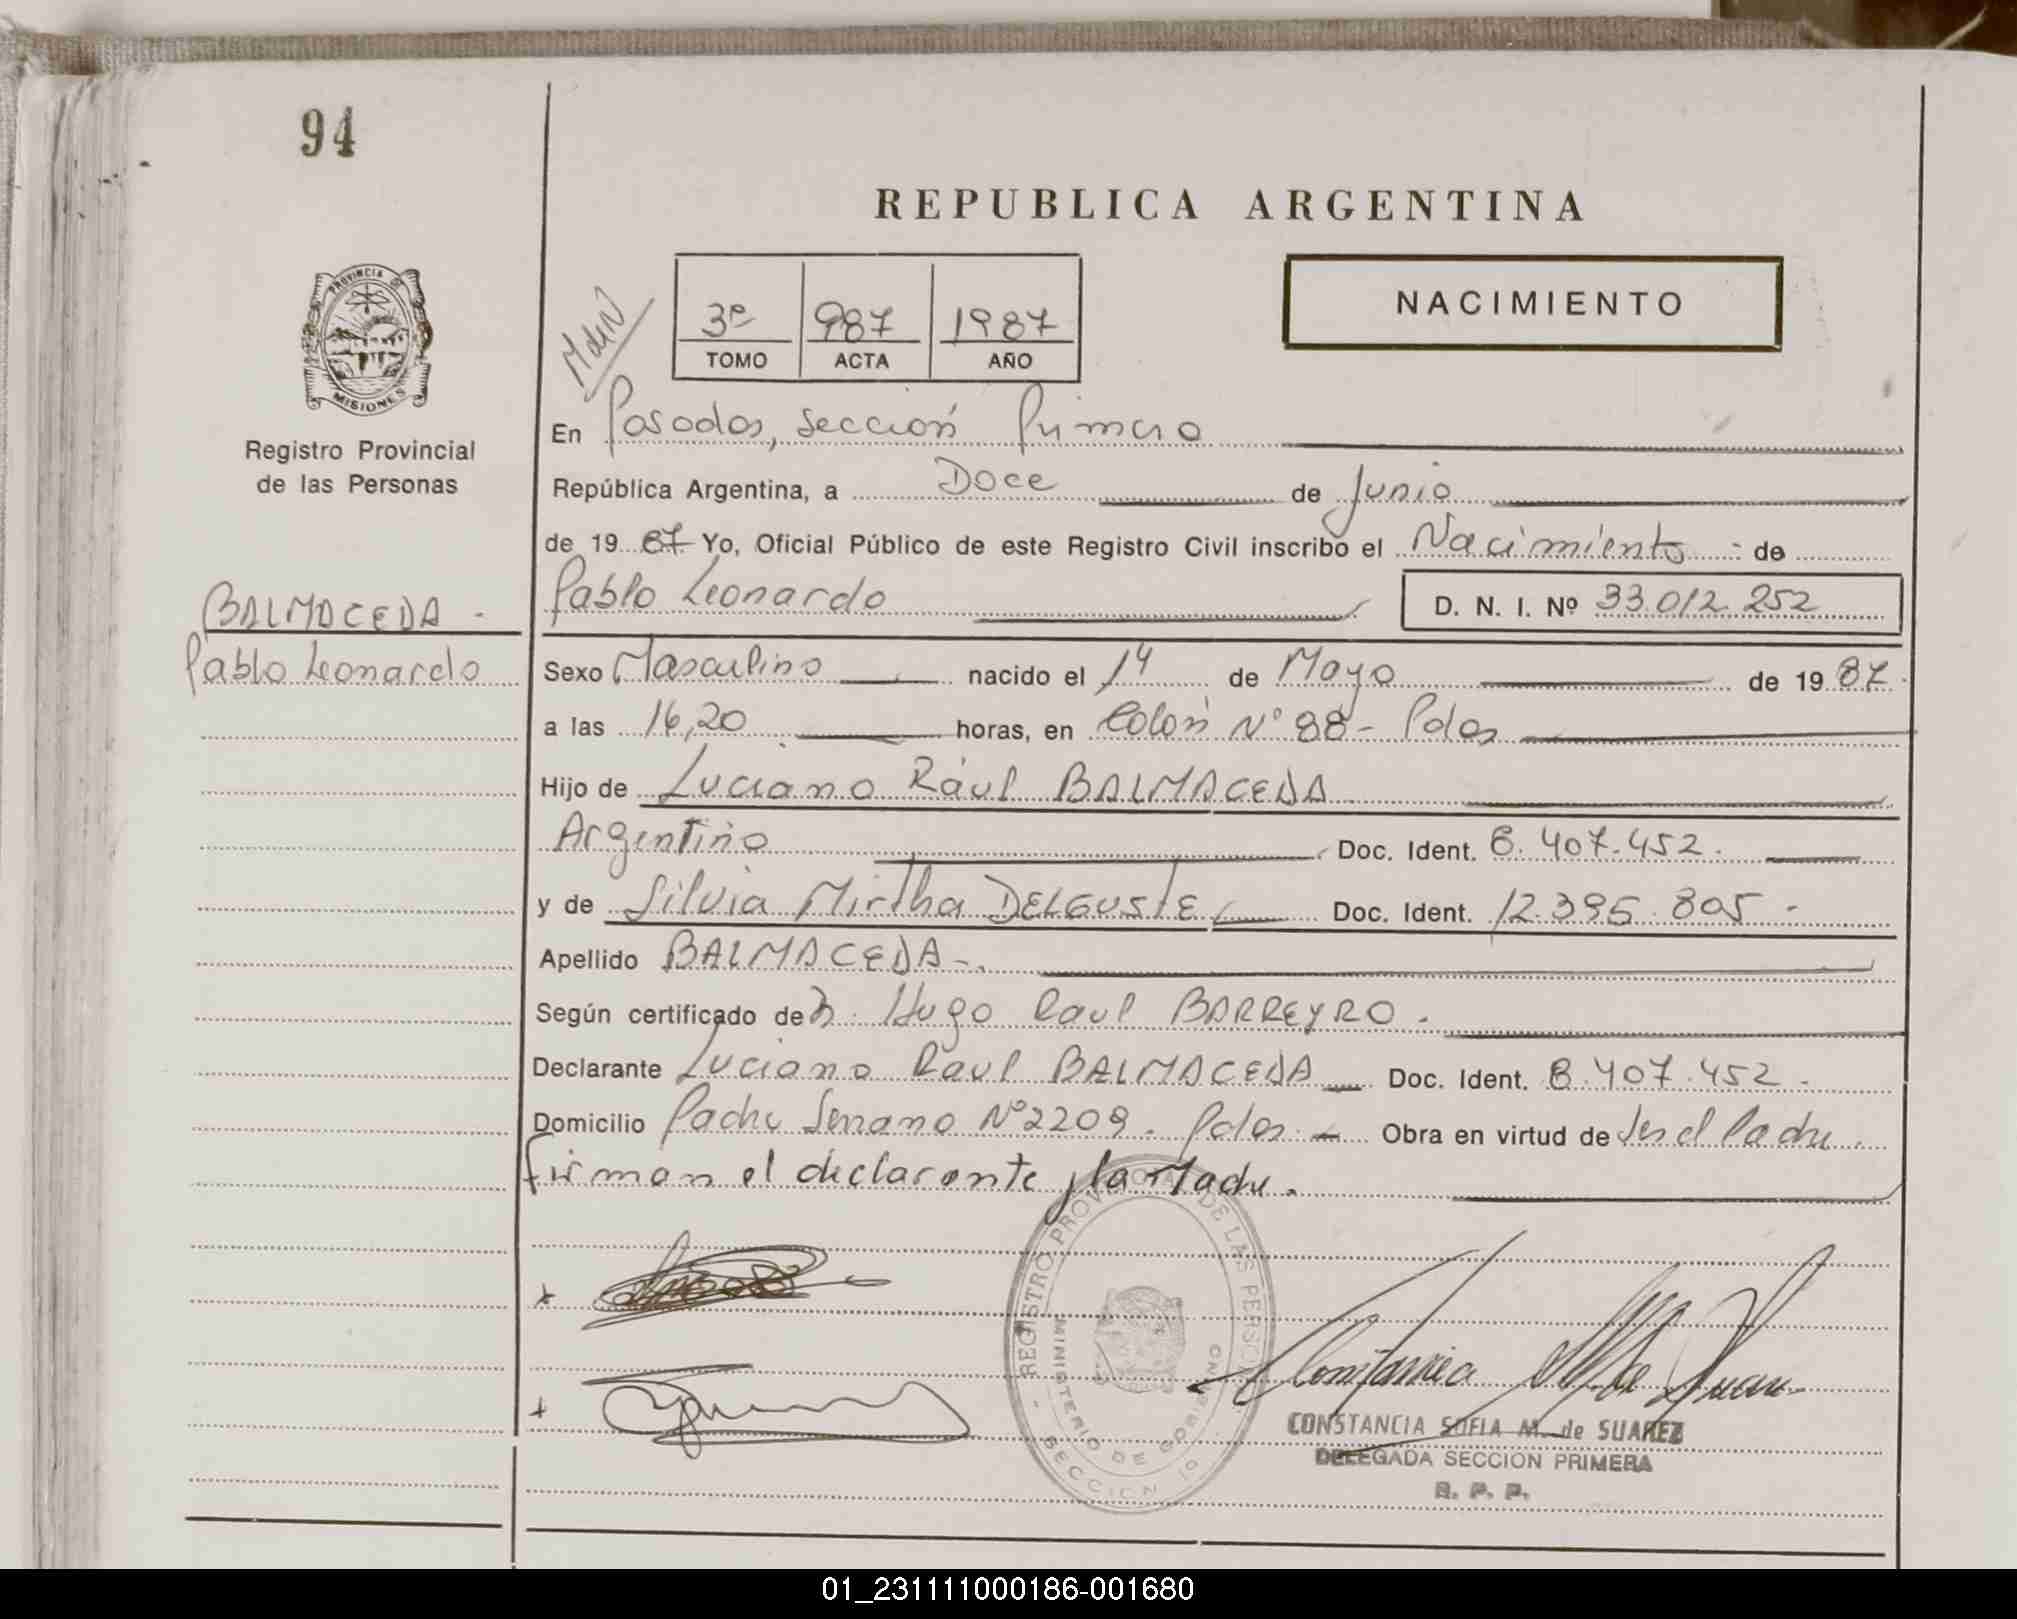 94
REPUBLICA ARGENTINA
PROVINCIA DE
MISIONES
Registro Provincial
de las Personas
3º 987 1987
TOMO ACTA AÑO
NACIMIENTO
En Posadas, Sección Primera
República Argentina, a Doce de Junio
de 19 87 Yo, Oficial Público de este Registro Civil inscribo el Nacimiento de
BALMACEDA -
Pablo Leonardo
Pablo Leonardo D. N. I. Nº 33.012.252
Sexo Masculino nacido el 14 de Mayo de 19 87
a las 16,20 horas, en Colón Nº 88 - Pdas
Hijo de Luciano Raúl BALMACEDA
Argentino Doc. Ident. 8.407.452.
y de Silvia Mirtha DELGUSTE Doc. Ident. 12.395.805 -
Apellido BALMACEDA -.
Según certificado de Dr. Hugo Raul BARREYRO.
Declarante Luciano Raul BALMACEDA Doc. Ident. 8.407.452.
Domicilio Padre Serrano Nº 2209. Pdas - Obra en virtud de Ser el Padre.
firman el declarante y la Madre.
REGISTRO PROVINCIAL DE LAS PERSONAS
MINISTERIO DE GOBIERNO
SECCION 1º
CONSTANCIA SOFIA M. de SUAREZ
DELEGADA SECCION PRIMERA
R. P. P.
01_231111000186-001680